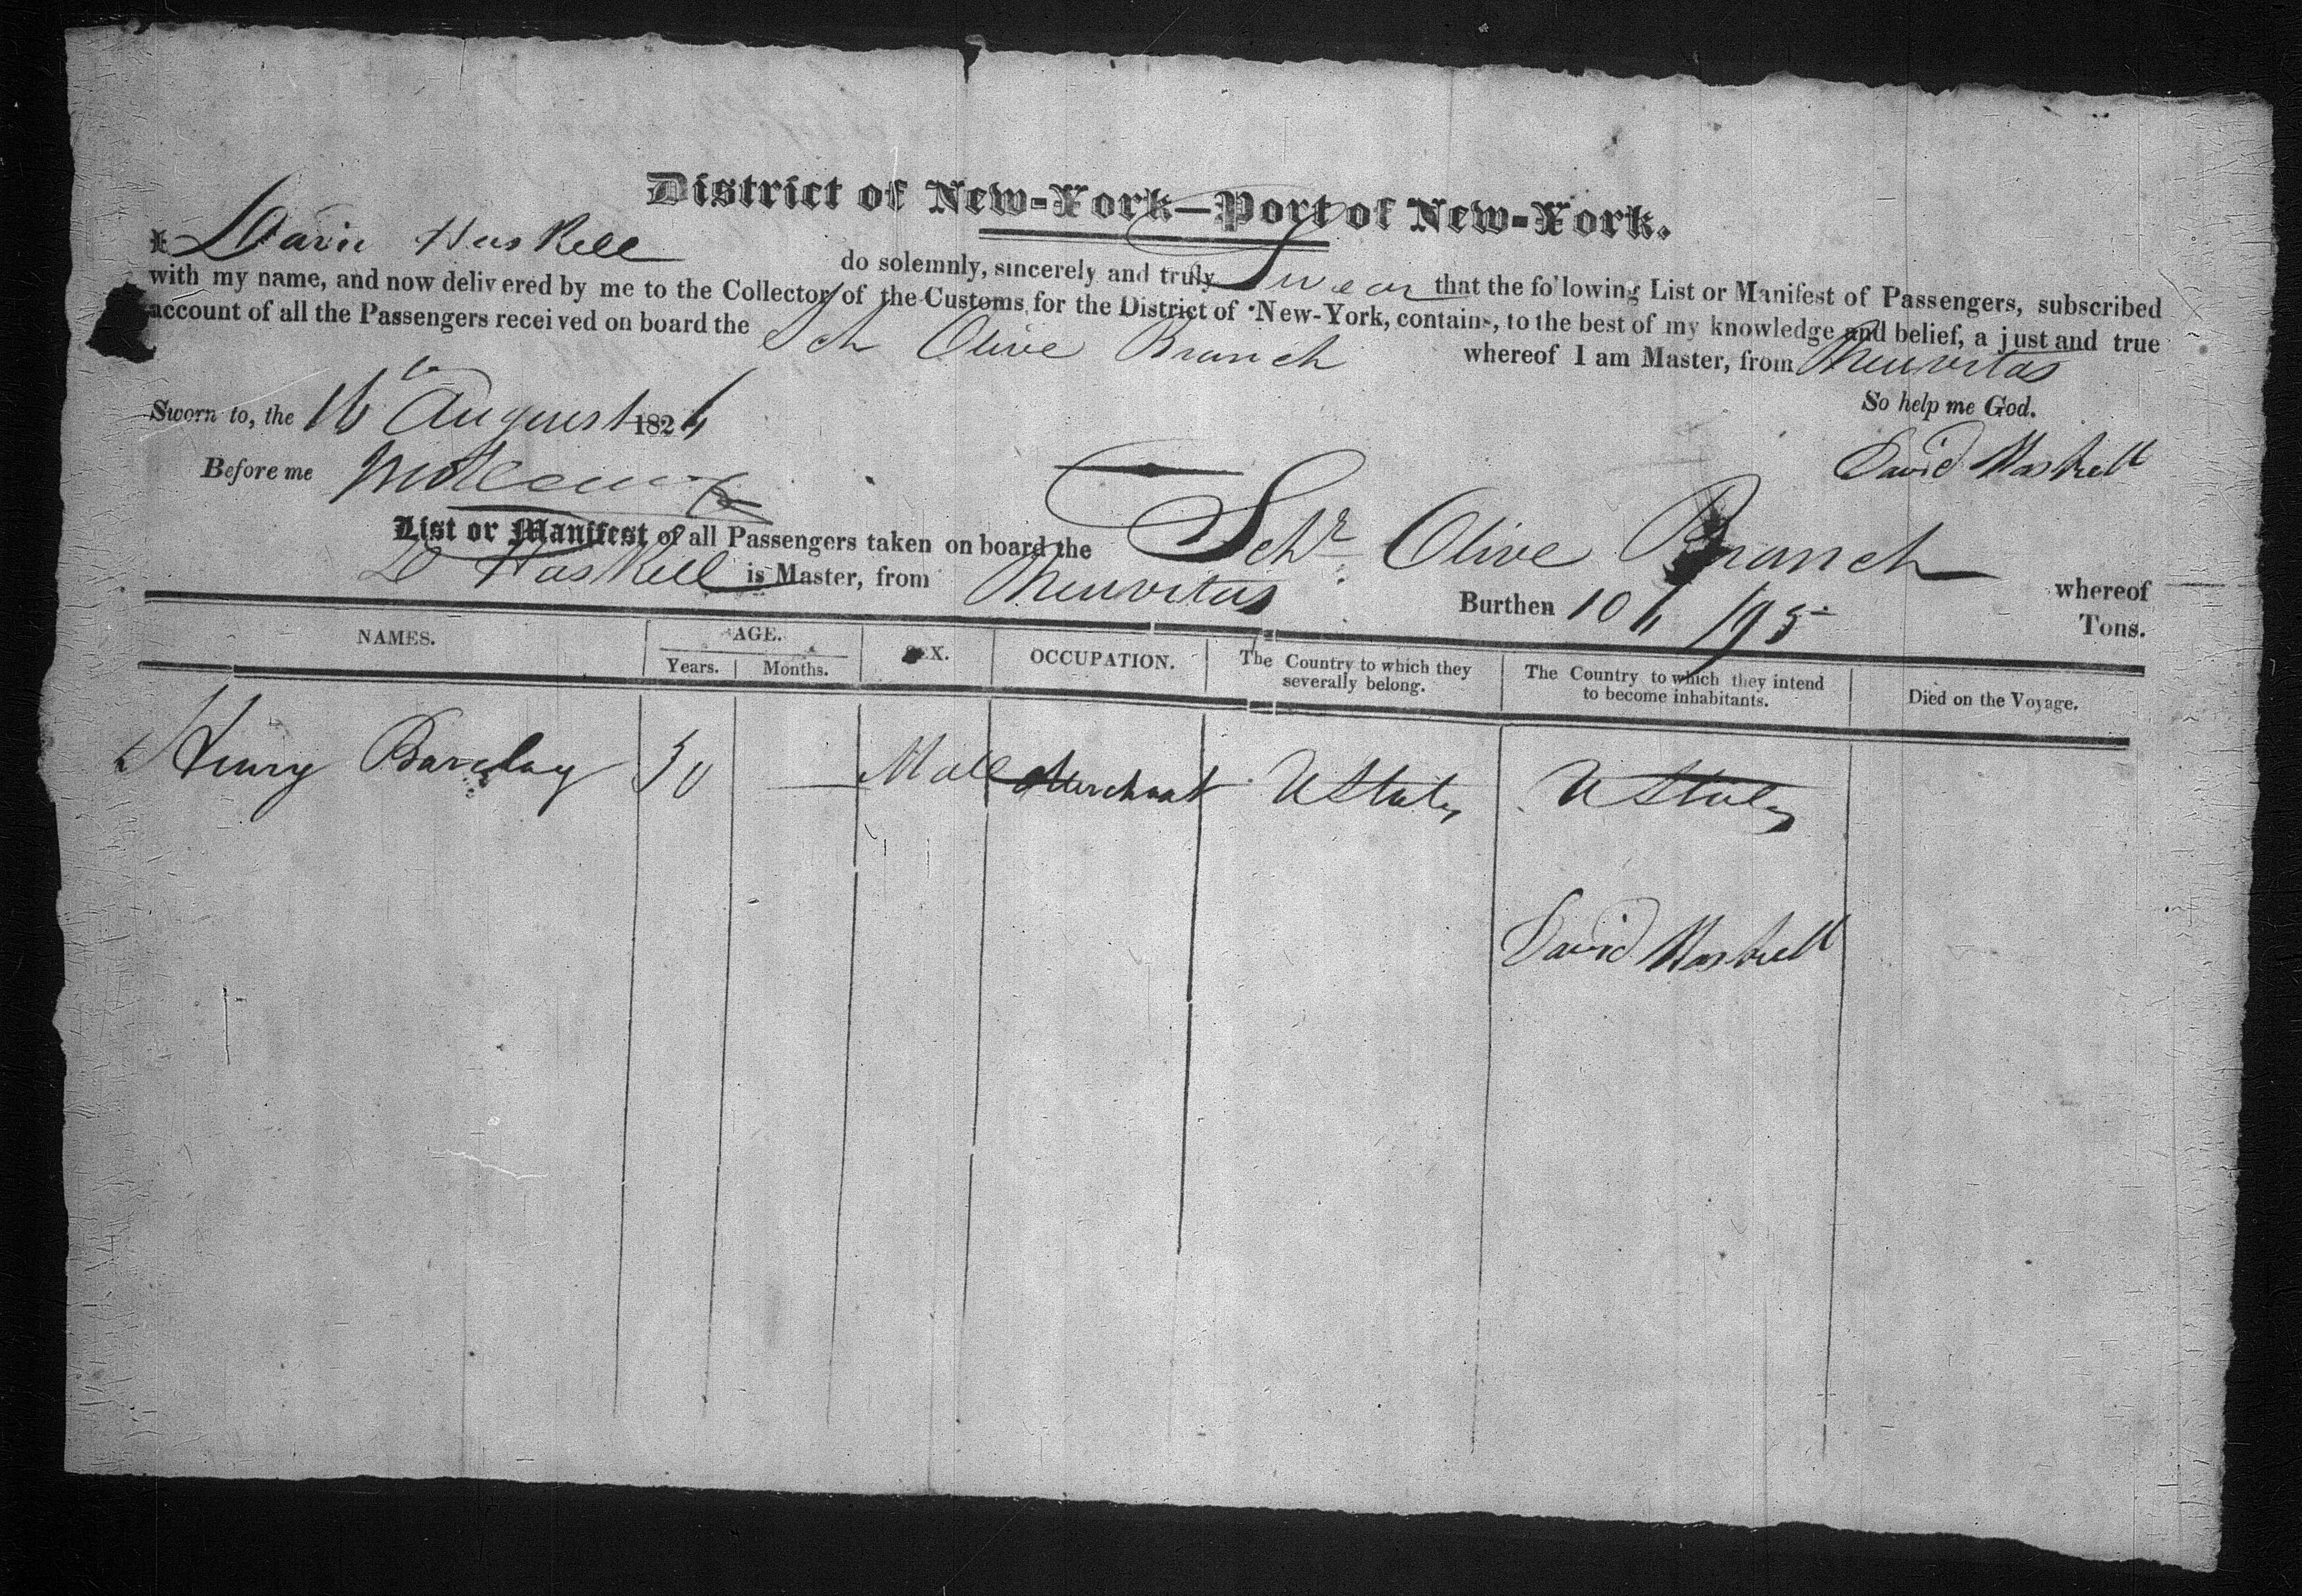 District of New-York—Port of New-York.
I David Haskell do solemnly, sincerely and truly Swear that the following List or Manifest of Passengers, subscribed
with my name, and now delivered by me to the Collector of the Customs for the District of New-York, contains, to the best of my knowledge and belief, a just and true
account of all the Passengers received on board the Sch Olive Branch whereof I am Master, from Neuvitas
So help me God.
Sworn to, the 16th August 1826
David Haskell
Before me
List or Manifest of all Passengers taken on board the Schr Olive Branch whereof
D Haskell is Master, from Neuvitas Burthen 106 /95 Tons.
NAMES. AGE. Years. Months. SEX. OCCUPATION. The Country to which they severally belong. The Country to which they intend to become inhabitants. Died on the Voyage.
Henry Barclay 50 — Male Merchant UStates UStates
David Haskell